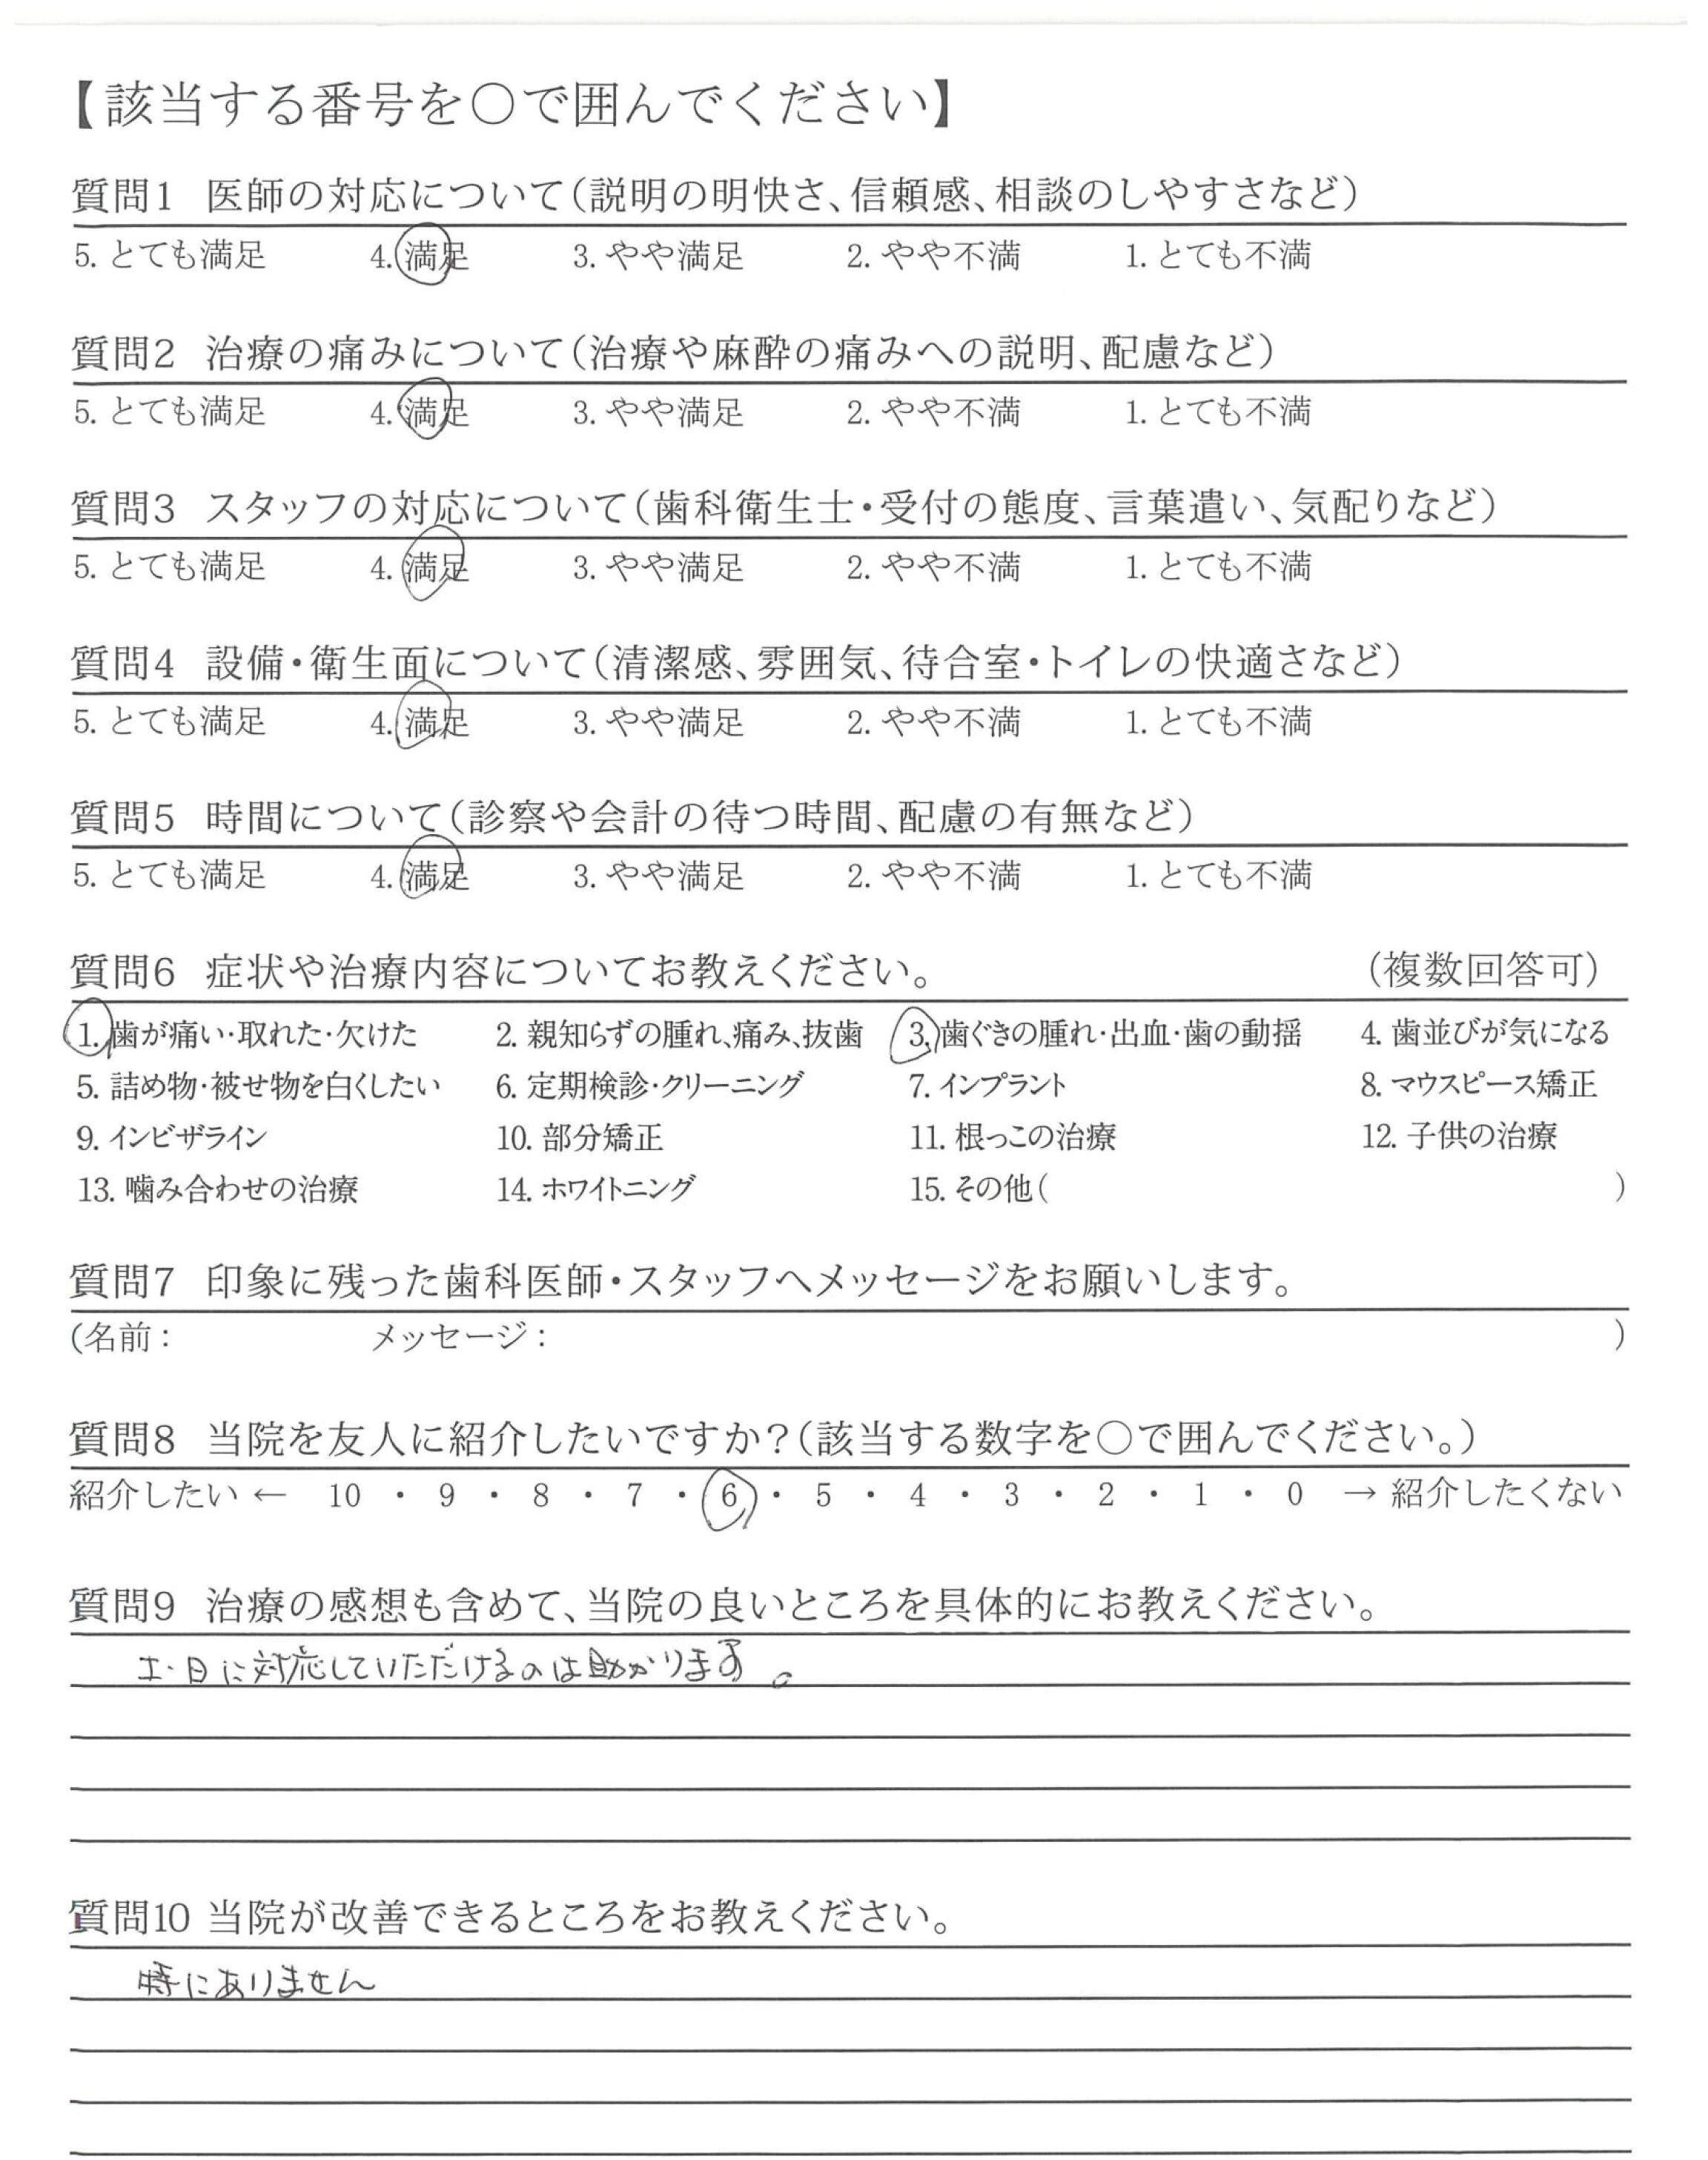 【該当する番号を○で囲んでください】
質問1 医師の対応について(説明の明快さ、信頼感、相談のしやすさなど)
5. とても満足 4. 満足 3. やや満足 2. やや不満 1. とても不満
質問2 治療の痛みについて(治療や麻酔の痛みへの説明、配慮など)
5. とても満足 4. 満足 3. やや満足 2. やや不満 1. とても不満
質問3 スタッフの対応について(歯科衛生士・受付の態度、言葉遣い、気配りなど)
5. とても満足 4. 満足 3. やや満足 2. やや不満 1. とても不満
質問4 設備・衛生面について(清潔感、雰囲気、待合室・トイレの快適さなど)
5. とても満足 4. 満足 3. やや満足 2. やや不満 1. とても不満
質問5 時間について(診察や会計の待つ時間、配慮の有無など)
5. とても満足 4. 満足 3. やや満足 2. やや不満 1. とても不満
質問6 症状や治療内容についてお教えください。 (複数回答可)
1. 歯が痛い・取れた・欠けた 2. 親知らずの腫れ、痛み、抜歯 3. 歯ぐきの腫れ・出血・歯の動揺 4. 歯並びが気になる
5. 詰め物・被せ物を白くしたい 6. 定期検診・クリーニング 7. インプラント 8. マウスピース矯正
9. インビザライン 10. 部分矯正 11. 根っこの治療 12. 子供の治療
13. 噛み合わせの治療 14. ホワイトニング 15. その他( )
質問7 印象に残った歯科医師・スタッフへメッセージをお願いします。
(名前： メッセージ： )
質問8 当院を友人に紹介したいですか?(該当する数字を○で囲んでください。)
紹介したい ← 10 ・ 9 ・ 8 ・ 7 ・ 6 ・ 5 ・ 4 ・ 3 ・ 2 ・ 1 ・ 0 → 紹介したくない
質問9 治療の感想も含めて、当院の良いところを具体的にお教えください。
土・日に対応していただけるのは助かります。
質問10 当院が改善できるところをお教えください。
特にありません